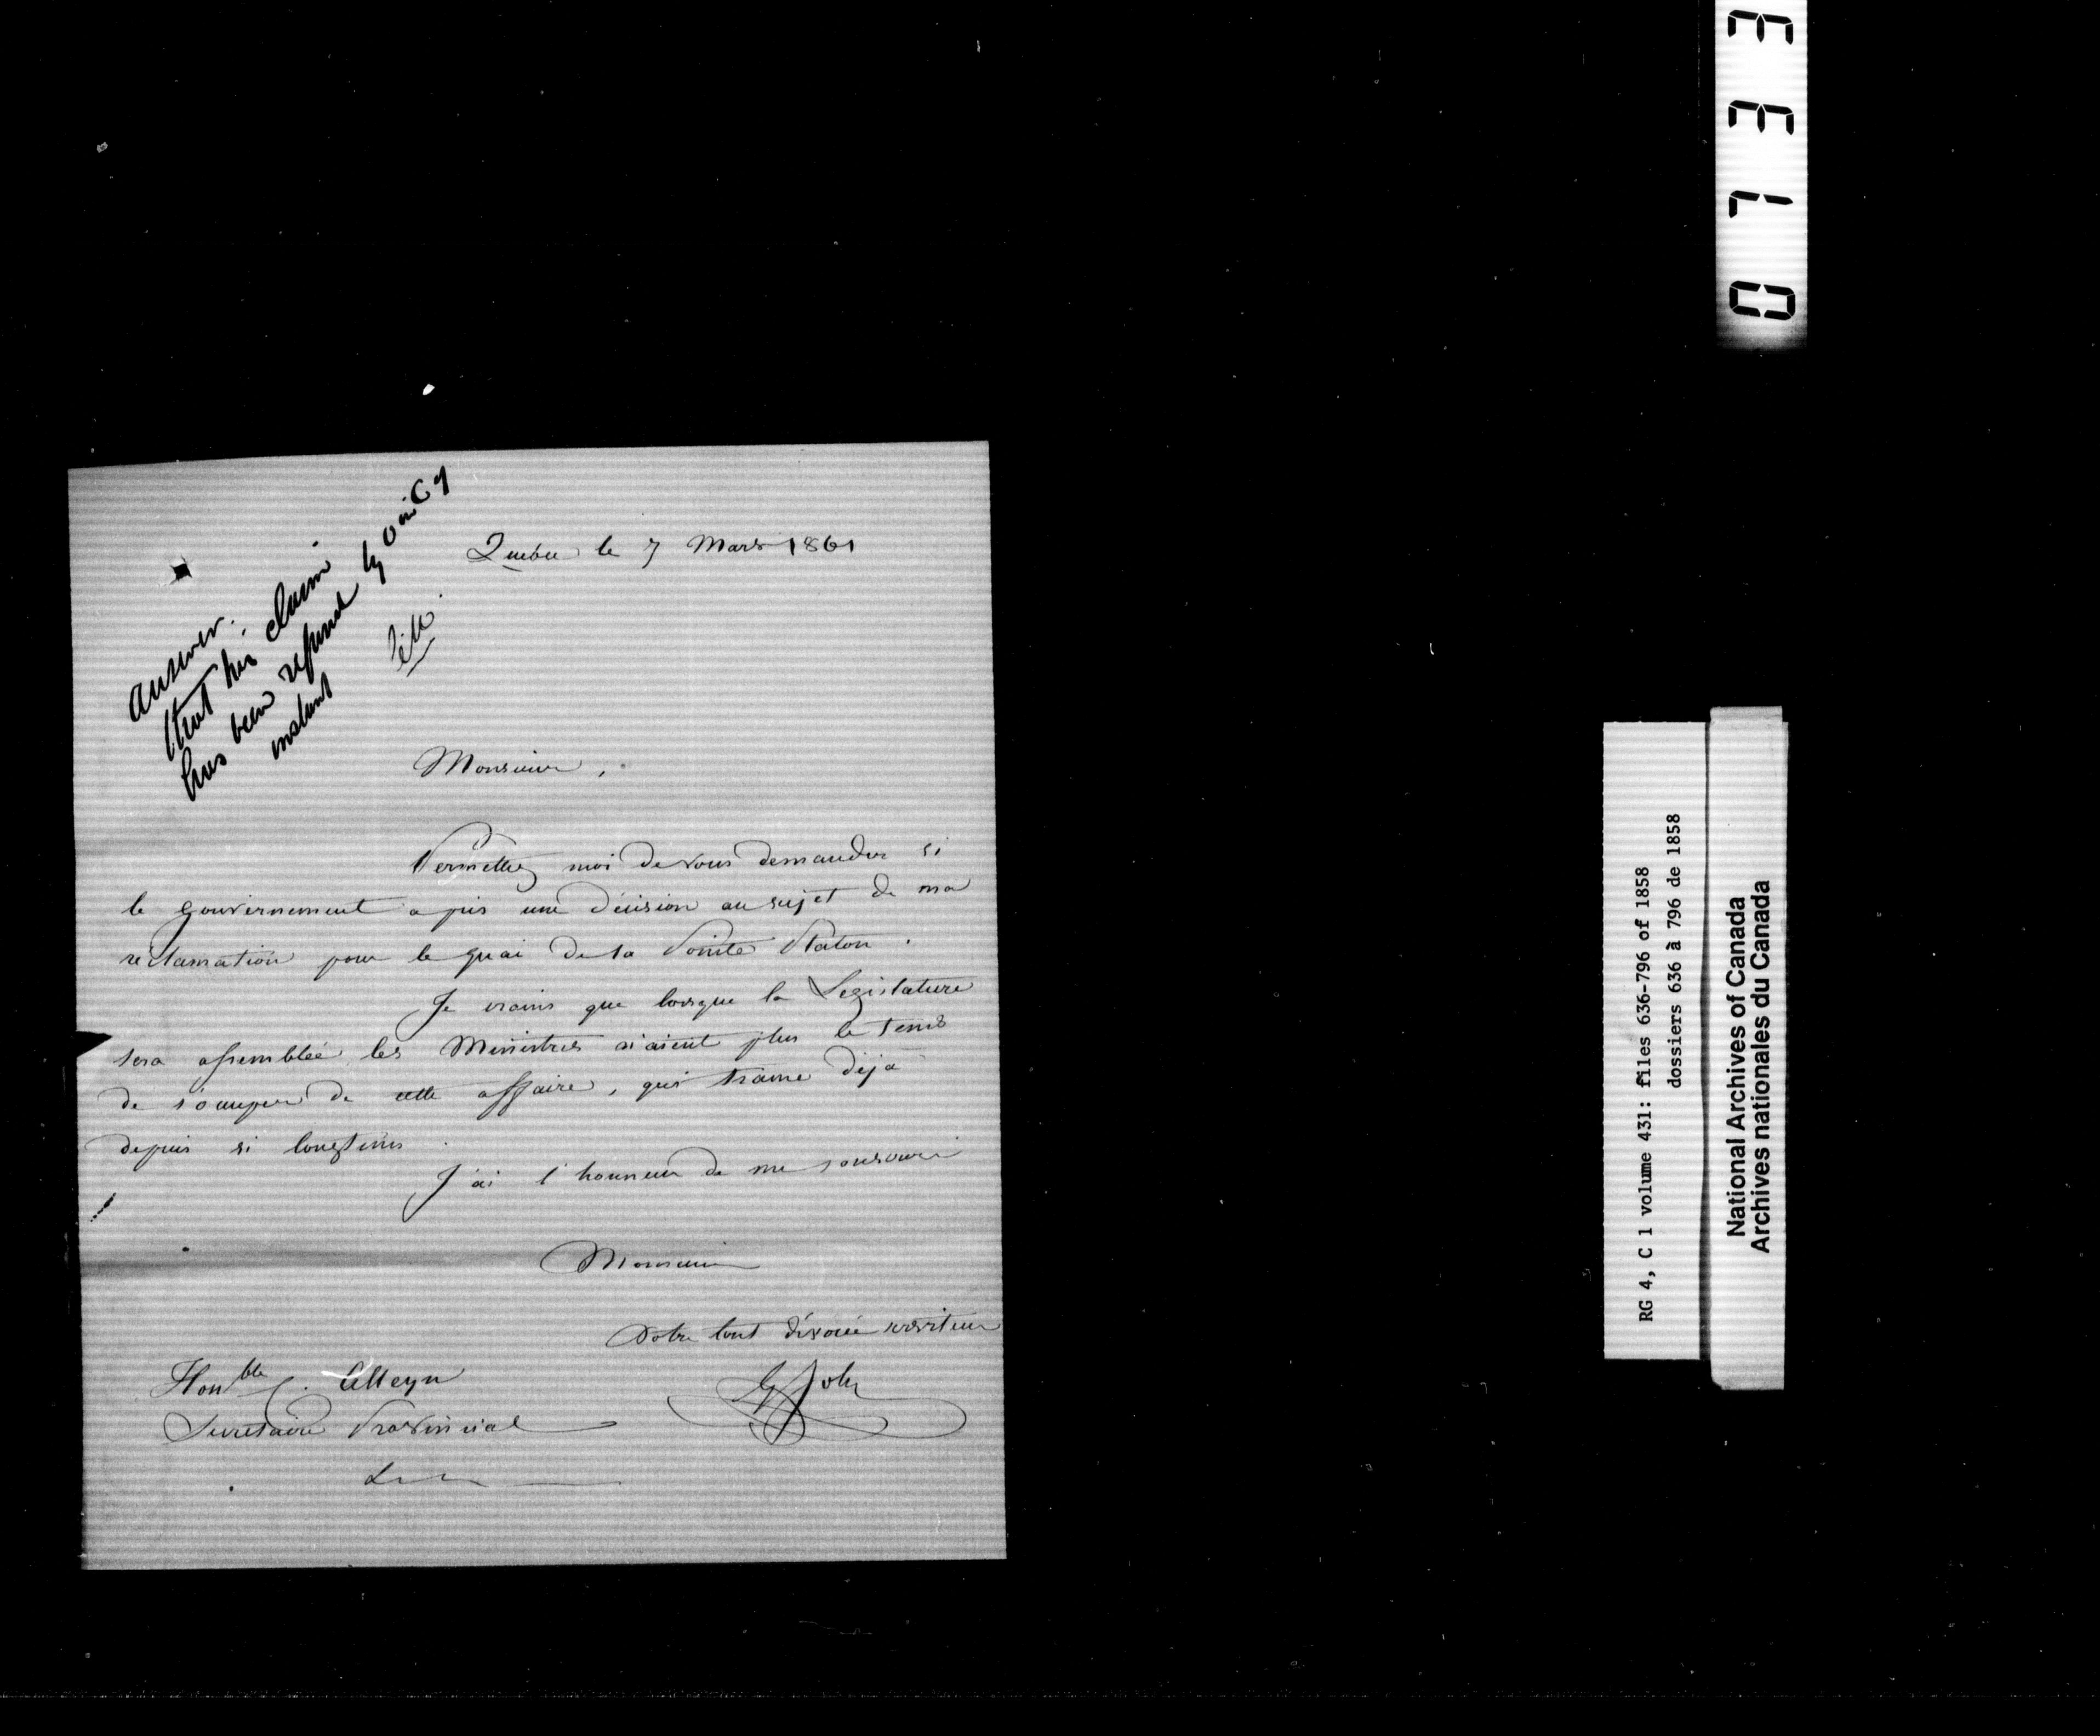 Answer.
that his claim
has been refused by O in C 9
instant
Quebec le 7 Mars 1861
Monsieur,
Permettez moi de vous demander si
le gouvernement a pris une décision au sujet de ma
réclamation pour le quai de la Pointe Platon.
Je crains que lorsque la Legislature
sera assemblée les Ministres n'aient plus le tems
de s'occuper de cette affaire, qui traine déjà
depuis si longtems.
J'ai l'honneur de me souscrire
Monsieur
Votre tout dévoué serviteur
G Joly
Honble C. Alleyn
Secretaire Provincial
0133
RG 4, C 1 volume 431: files 636-796 of 1858
dossiers 636 à 796 de 1858
National Archives of Canada
Archives nationales du Canada